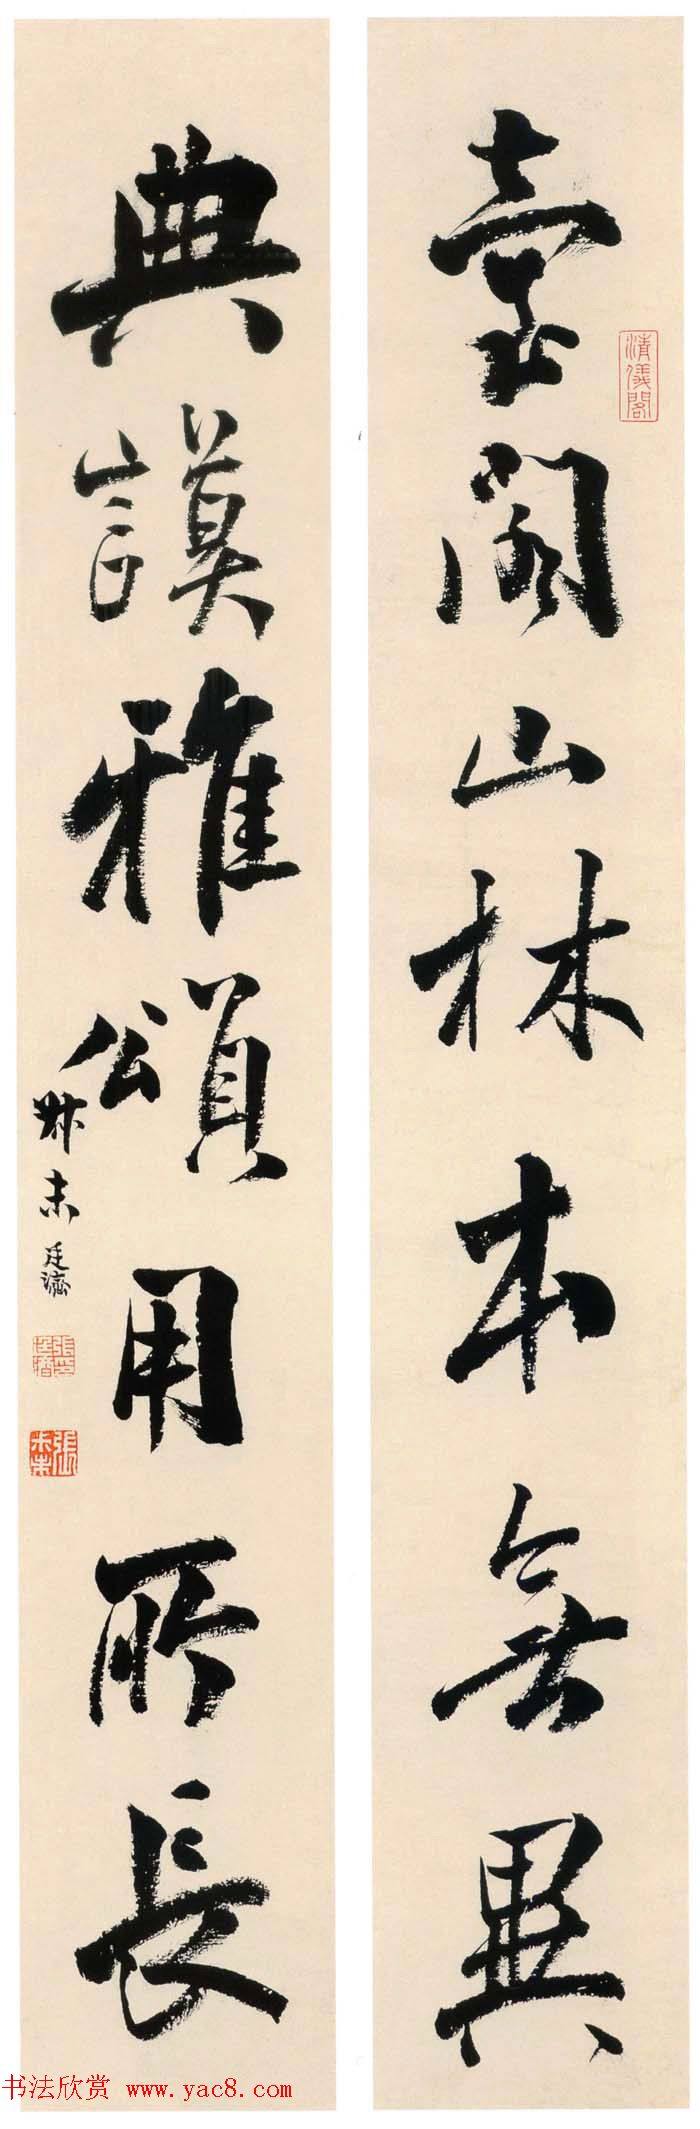 臺閣山林本無異
清儀閣
典謨雅頌用所長
叔未廷濟
張廷濟印
張叔未
书法欣赏 www.yac8.com